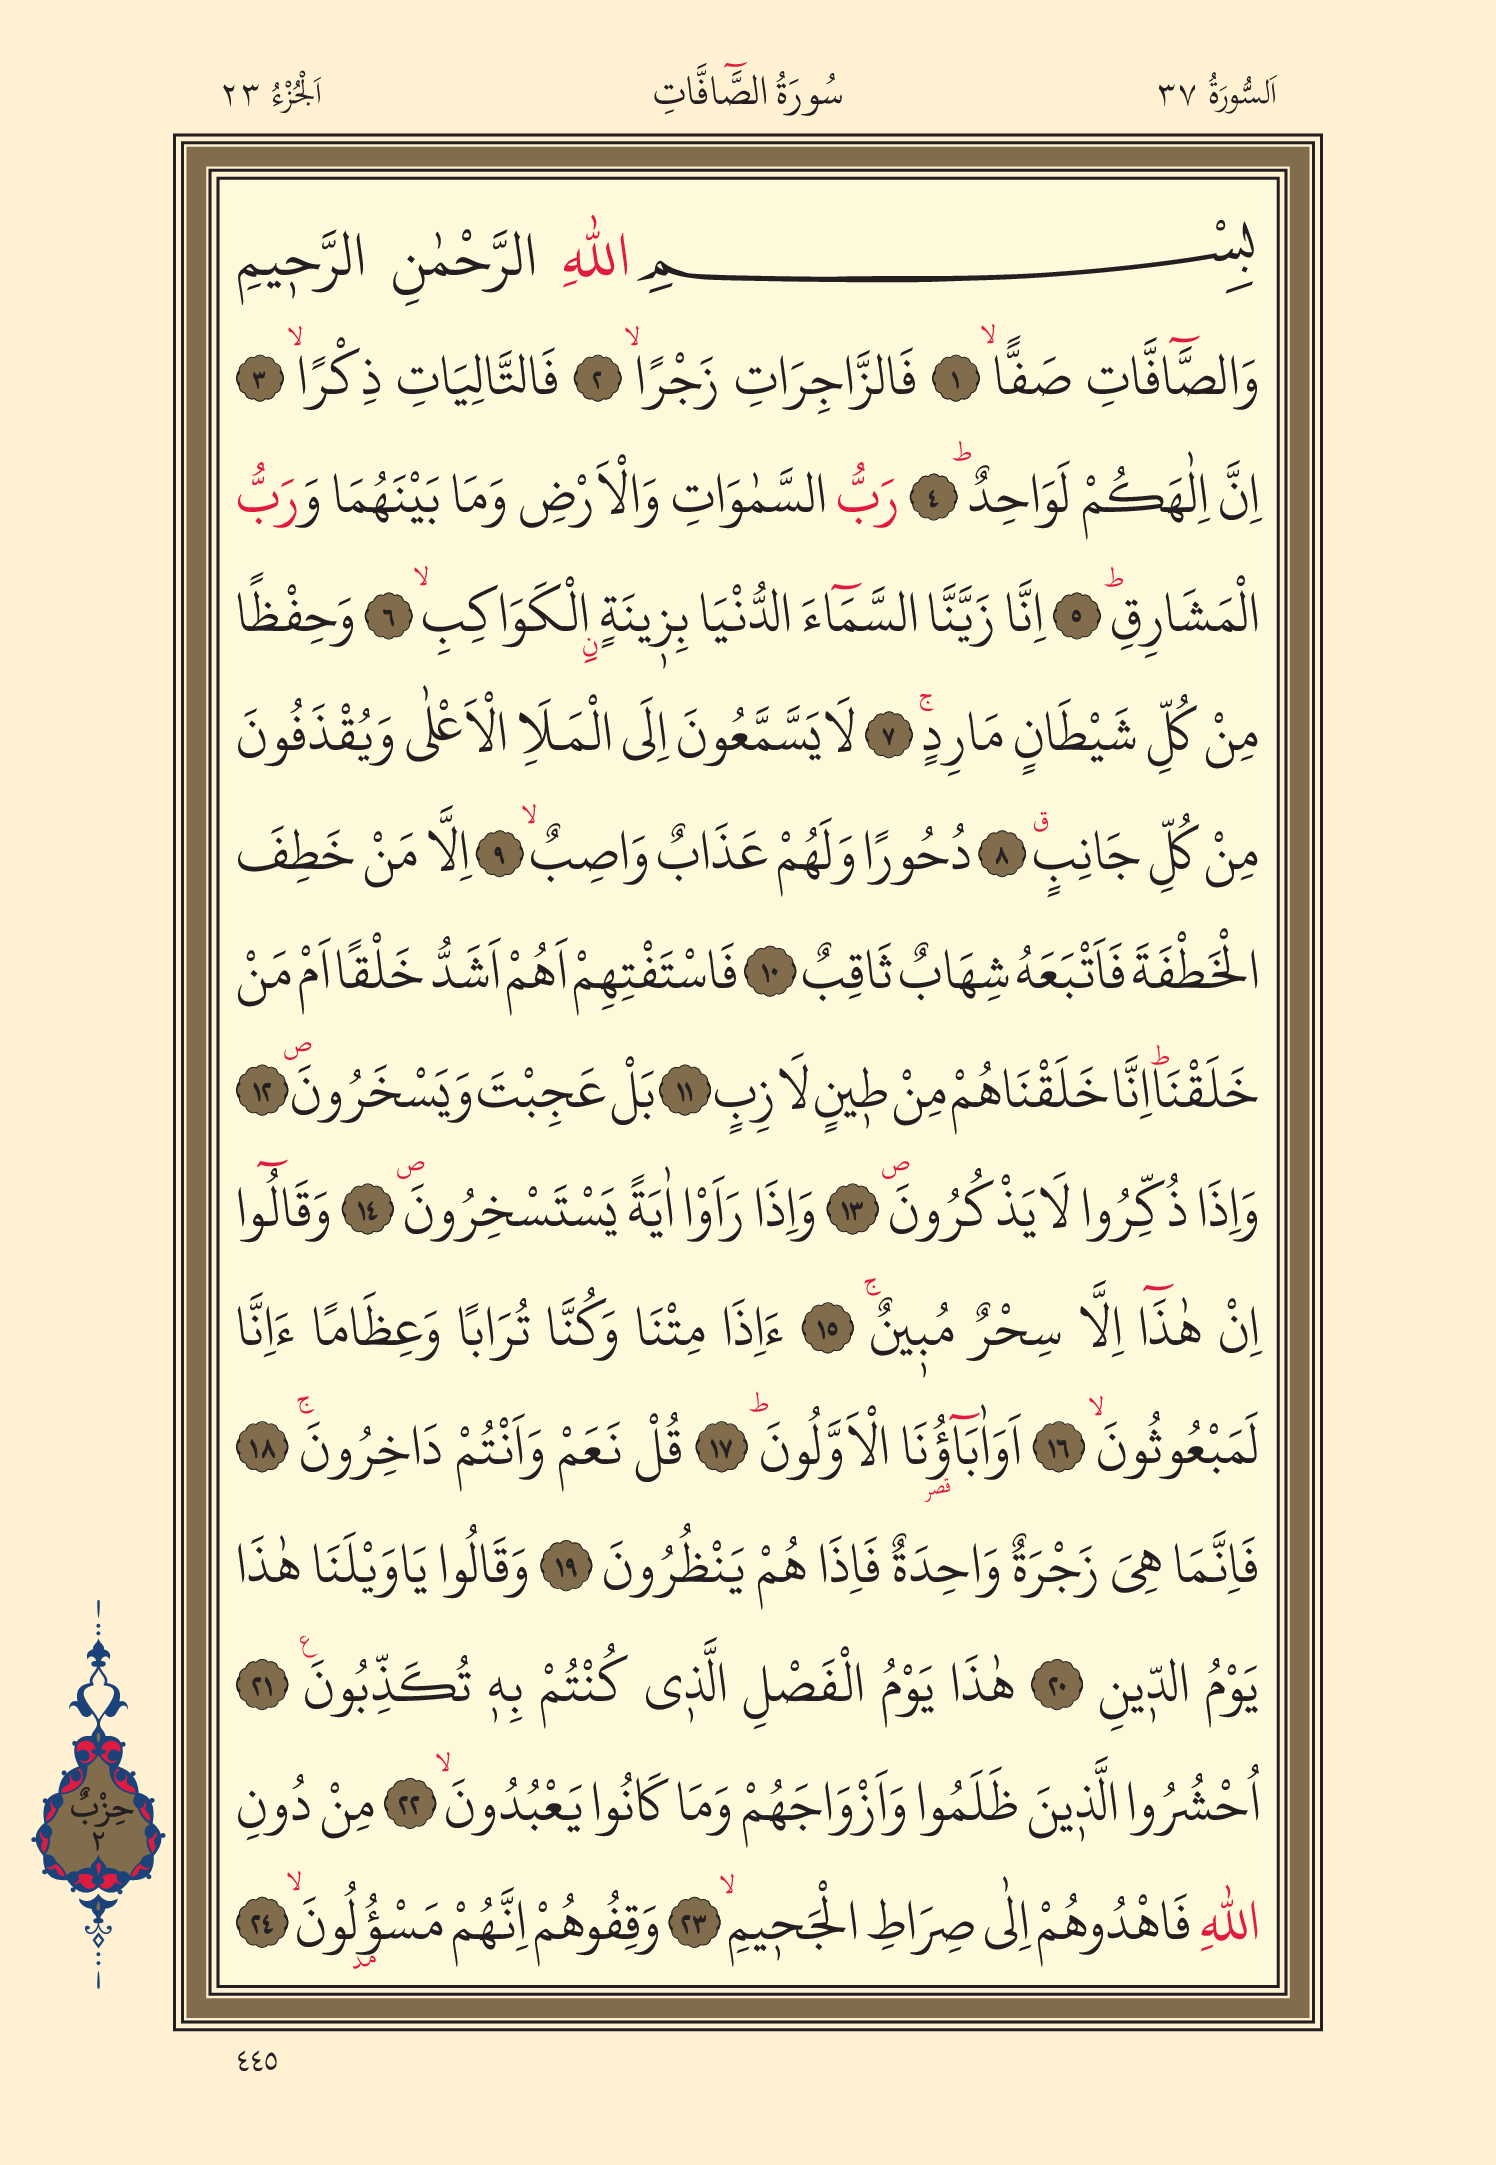 اَلسُّورَةُ ٣٧
سُورَةُ الصَّٓافَّاتِ
اَلْجُزْءُ ٢٣
بِسْمِ اللّٰهِ الرَّحْمٰنِ الرَّح۪يمِ
وَالصَّٓافَّاتِ صَفًّاۙ ١ فَالزَّاجِرَاتِ زَجْرًاۙ ٢ فَالتَّالِيَاتِ ذِكْرًاۙ ٣
اِنَّ اِلٰهَكُمْ لَوَاحِدٌۜ ٤ رَبُّ السَّمٰوَاتِ وَالْاَرْضِ وَمَا بَيْنَهُمَا وَرَبُّ
الْمَشَارِقِۜ ٥ اِنَّا زَيَّنَّا السَّمَٓاءَ الدُّنْيَا بِز۪ينَةٍۨ الْكَوَاكِبِۙ ٦ وَحِفْظًا
مِنْ كُلِّ شَيْطَانٍ مَارِدٍۚ ٧ لَا يَسَّمَّعُونَ اِلَى الْمَلَاِ الْاَعْلٰى وَيُقْذَفُونَ
مِنْ كُلِّ جَانِبٍۗ ٨ دُحُورًا وَلَهُمْ عَذَابٌ وَاصِبٌۙ ٩ اِلَّا مَنْ خَطِفَ
الْخَطْفَةَ فَاَتْبَعَهُ شِهَابٌ ثَاقِبٌ ١٠ فَاسْتَفْتِهِمْ اَهُمْ اَشَدُّ خَلْقًا اَمْ مَنْ
خَلَقْنَاۜ اِنَّا خَلَقْنَاهُمْ مِنْ ط۪ينٍ لَازِبٍ ١١ بَلْ عَجِبْتَ وَيَسْخَرُونَۖ ١٢
وَاِذَا ذُكِّرُوا لَا يَذْكُرُونَۖ ١٣ وَاِذَا رَاَوْا اٰيَةً يَسْتَسْخِرُونَۖ ١٤ وَقَالُٓوا
اِنْ هٰذَٓا اِلَّا سِحْرٌ مُب۪ينٌۚ ١٥ ءَاِذَا مِتْنَا وَكُنَّا تُرَابًا وَعِظَامًا ءَاِنَّا
لَمَبْعُوثُونَۙ ١٦ اَوَاٰبَٓاؤُ۬نَا الْاَوَّلُونَۜ ١٧ قُلْ نَعَمْ وَاَنْتُمْ دَاخِرُونَۚ ١٨
قصر
فَاِنَّمَا هِيَ زَجْرَةٌ وَاحِدَةٌ فَاِذَا هُمْ يَنْظُرُونَ ١٩ وَقَالُوا يَاوَيْلَنَا هٰذَا
يَوْمُ الدّ۪ينِ ٢٠ هٰذَا يَوْمُ الْفَصْلِ الَّذ۪ي كُنْتُمْ بِه۪ تُكَذِّبُونَ ع ٢١
اُحْشُرُوا الَّذ۪ينَ ظَلَمُوا وَاَزْوَاجَهُمْ وَمَا كَانُوا يَعْبُدُونَۙ ٢٢ مِنْ دُونِ
اللّٰهِ فَاهْدُوهُمْ اِلٰى صِرَاطِ الْجَح۪يمِۙ ٢٣ وَقِفُوهُمْ اِنَّهُمْ مَسْؤُ۫لُونَۙ ٢٤
مد
حِزْبٌ
٢
٤٤٥